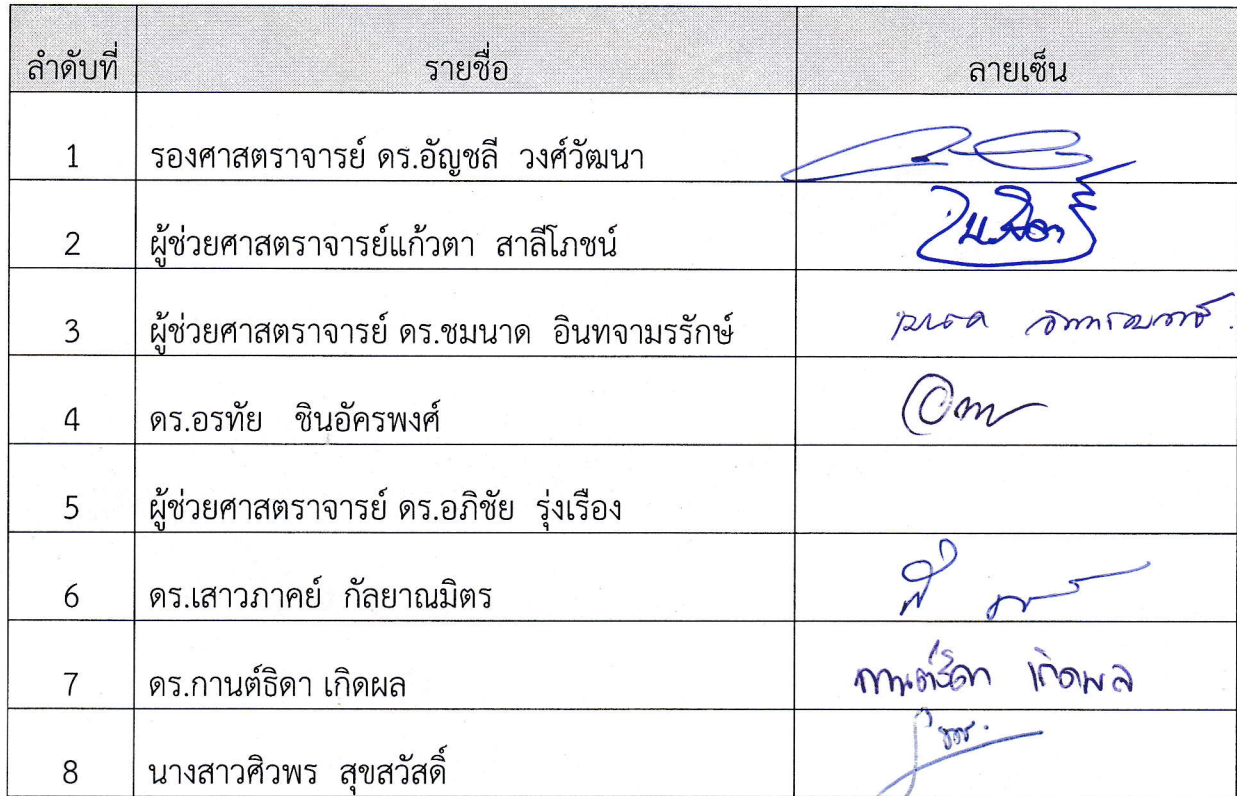 ลำดับที่ รายชื่อ ลายเซ็น
1 รองศาสตราจารย์ ดร.อัญชลี วงศ์วัฒนา
2 ผู้ช่วยศาสตราจารย์แก้วตา สาลีโภชน์
3 ผู้ช่วยศาสตราจารย์ ดร.ชมนาด อินทจามรรักษ์
4 ดร.อรทัย ชินอัครพงศ์
5 ผู้ช่วยศาสตราจารย์ ดร.อภิชัย รุ่งเรือง
6 ดร.เสาวภาคย์ กัลยาณมิตร
7 ดร.กานต์ธิดา เกิดผล กานต์ธิดา เกิดผล
8 นางสาวศิวพร สุขสวัสดิ์